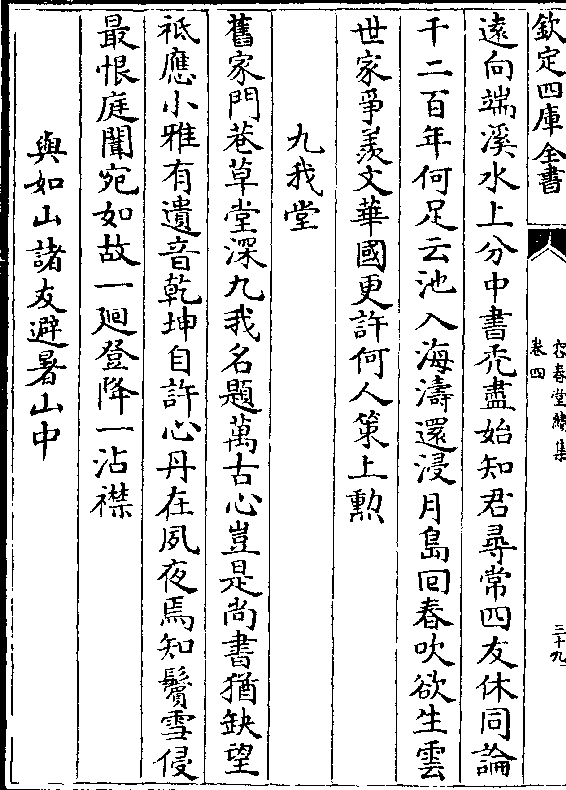 欽定四庫全書
容春堂續集
卷四
三十九
遠向端溪水上分中書禿盡始知君尋常四友休同論
千二百年何足云池入海濤還浸月島回春吹欲生雲
世家爭羨文華國更許何人策上勲
九我堂
舊家門巷草堂深九我名題萬古心豈是尚書猶缺望
祗應小雅有遺音乾坤自許心丹在夙夜焉知鬢雪侵
最恨庭闈宛如故一廻登降一沾襟
與如山諸友避暑山中